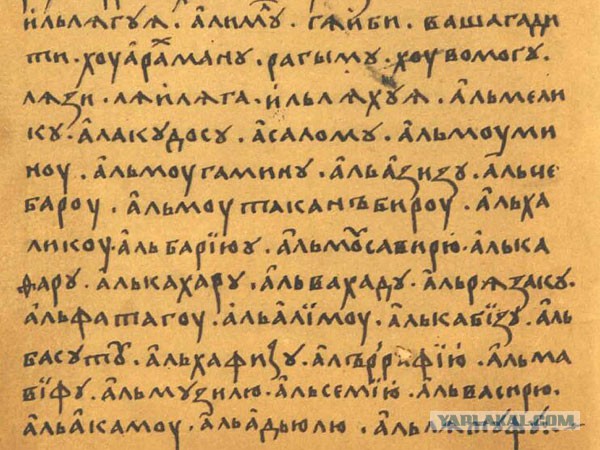 ильлягуя. алимꙋ. гяиби. вашагади
ти. хоуараману. рагыму. хоувомогу.
лязи. ляиляга. ильляхуя. альмели
ку. алакудосу. асалому. альмоуми
ноу. альмоугамину. альазизу. альче
бароу. альмоутаканъбироу. альха
ликоу. альбарїюу. альмꙋсавирю. алька
фару. алькахару. альвахаду. альрязаку.
альфатагоу. альалїмоу. алькабїзу. аль
басутꙋ. альхафизу. алъррафїю. альма
вїфу. альмузилю. альсемїю. альвасирю.
альакамоу. альадьюлю. альлятуфу.
YAPLAKAL.COM